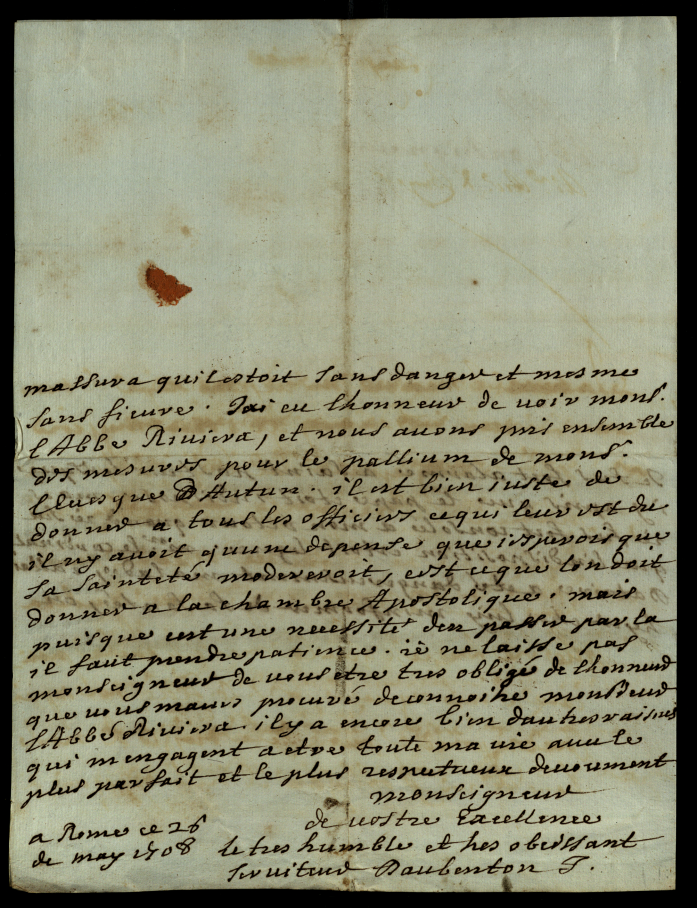 massura quil estoit sans danger et mesme
sans fieure. Jai eu lhonneur de voir mons.r
l'Abbe Riviera, et nous auons pris ensemble
des mesures pour le pallium de mons.r
lEuesque D'Autun. il est bien iuste de
donner a tous les officiers ce qui leur est du
il ny avoit qu'aune depense que iesperois que
sa sainteté modereroit, c'est ce que lon doit
donner a la chambre Apostolique. mais
puisque cest une necessité den passer par la
il faut prendre patience. ie ne laisse pas
monseigneur de vous etre tres obligé de lhonneur
que vous maues procuré de connoitre monsieur
l'Abbé Riviera. il y a encore bien dautres raisons
qui mengagent a etre toute ma vie auec le
plus parfait et le plus respectueux deuouement
monseigneur
de vostre Excellence
a Rome ce 26
de may 1708
le tres humble et tres obeissant
seruiteur Daubenton J.